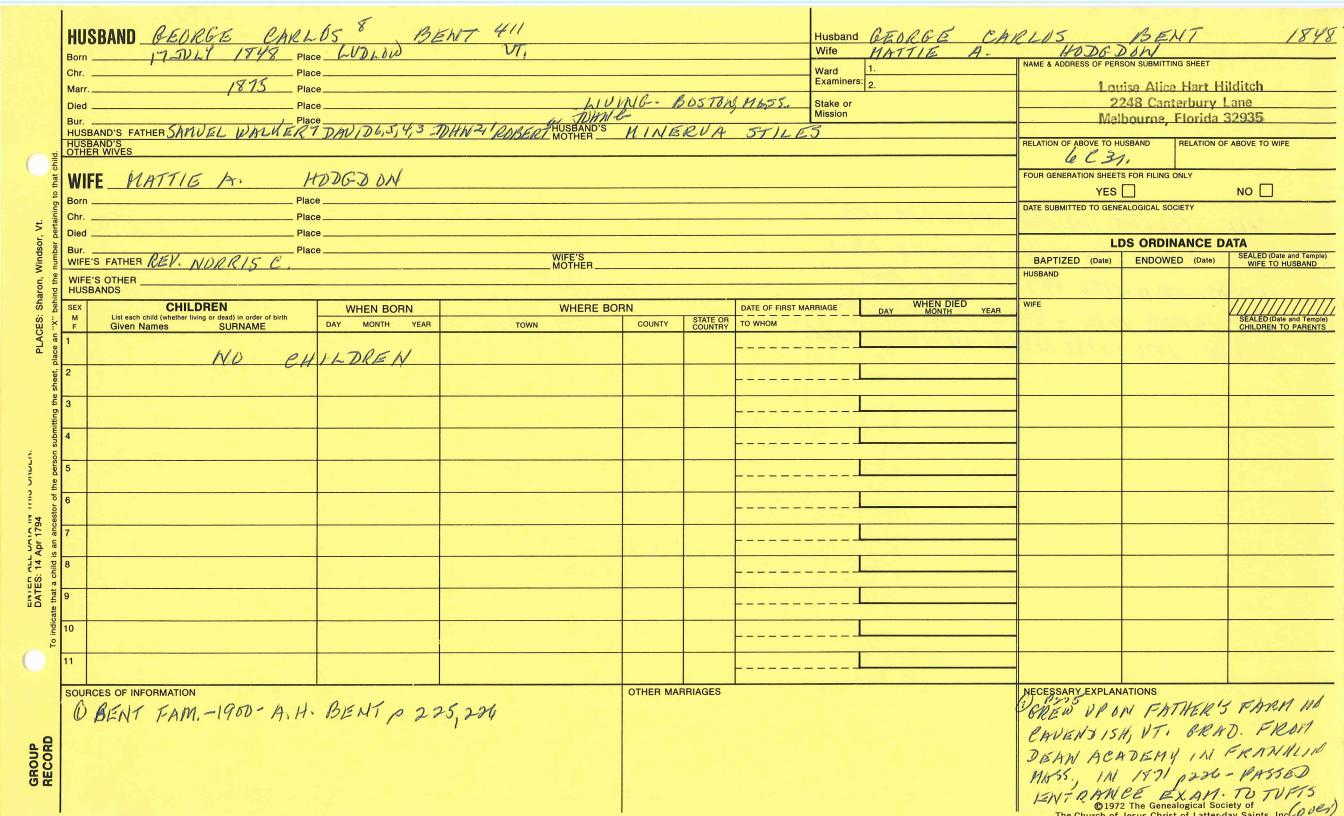 HUSBAND GEORGE CARLOS 8 BENT 411
Born 17 JULY 1848 Place LUDLOW VT.
Chr. Place
Marr. 1875 Place
Died Place LIVING - BOSTON, MASS.
Bur. Place
HUSBAND'S FATHER SAMUEL WALKER 7 DAVID 6,5,4,3 JOHN 2,1 ROBERT HUSBAND'S MOTHER MINERVA STILES
HUSBAND'S OTHER WIVES
WIFE MATTIE A. HODGDON
Born Place
Chr. Place
Died Place
Bur. Place
WIFE'S FATHER REV. NORRIS C. WIFE'S MOTHER
WIFE'S OTHER HUSBANDS
Husband GEORGE CARLOS BENT 1848
Wife MATTIE A. HODGDON
Ward Examiners: 1.
2.
Stake or Mission
NAME & ADDRESS OF PERSON SUBMITTING SHEET
Louise Alice Hart Hilditch
2248 Canterbury Lane
Melbourne, Florida 32935
RELATION OF ABOVE TO HUSBAND RELATION OF ABOVE TO WIFE
6 C 3r.
FOUR GENERATION SHEETS FOR FILING ONLY
YES NO
DATE SUBMITTED TO GENEALOGICAL SOCIETY
LDS ORDINANCE DATA
BAPTIZED (Date) ENDOWED (Date) SEALED (Date and Temple) WIFE TO HUSBAND
HUSBAND
WIFE
SEALED (Date and Temple) CHILDREN TO PARENTS
SEX M F
CHILDREN
List each child (whether living or dead) in order of birth
Given Names SURNAME
WHEN BORN
DAY MONTH YEAR
WHERE BORN
TOWN COUNTY STATE OR COUNTRY
DATE OF FIRST MARRIAGE
TO WHOM
WHEN DIED
DAY MONTH YEAR
1 NO CHILDREN
2
3
4
5
6
7
8
9
10
11
SOURCES OF INFORMATION
① BENT FAM. - 1900 - A.H. BENT p 225, 226
OTHER MARRIAGES
NECESSARY EXPLANATIONS
① p225
GREW UP ON FATHER'S FARM
CAVENDISH, VT. GRAD. FROM
DEAN ACADEMY IN FRANKLIN
MASS, IN 1871 p226 - PASSED
ENTRANCE EXAM. TO TUFTS
(over)
©1972 The Genealogical Society of
The Church of Jesus Christ of Latter-day Saints, Inc.
PLACES: Sharon, Windsor, Vt.
To indicate that a child is an ancestor of the person submitting the sheet, place an "X" behind the number pertaining to that child.
ENTER ALL DATA IN THIS ORDER:
DATES: 14 Apr 1794
GROUP RECORD